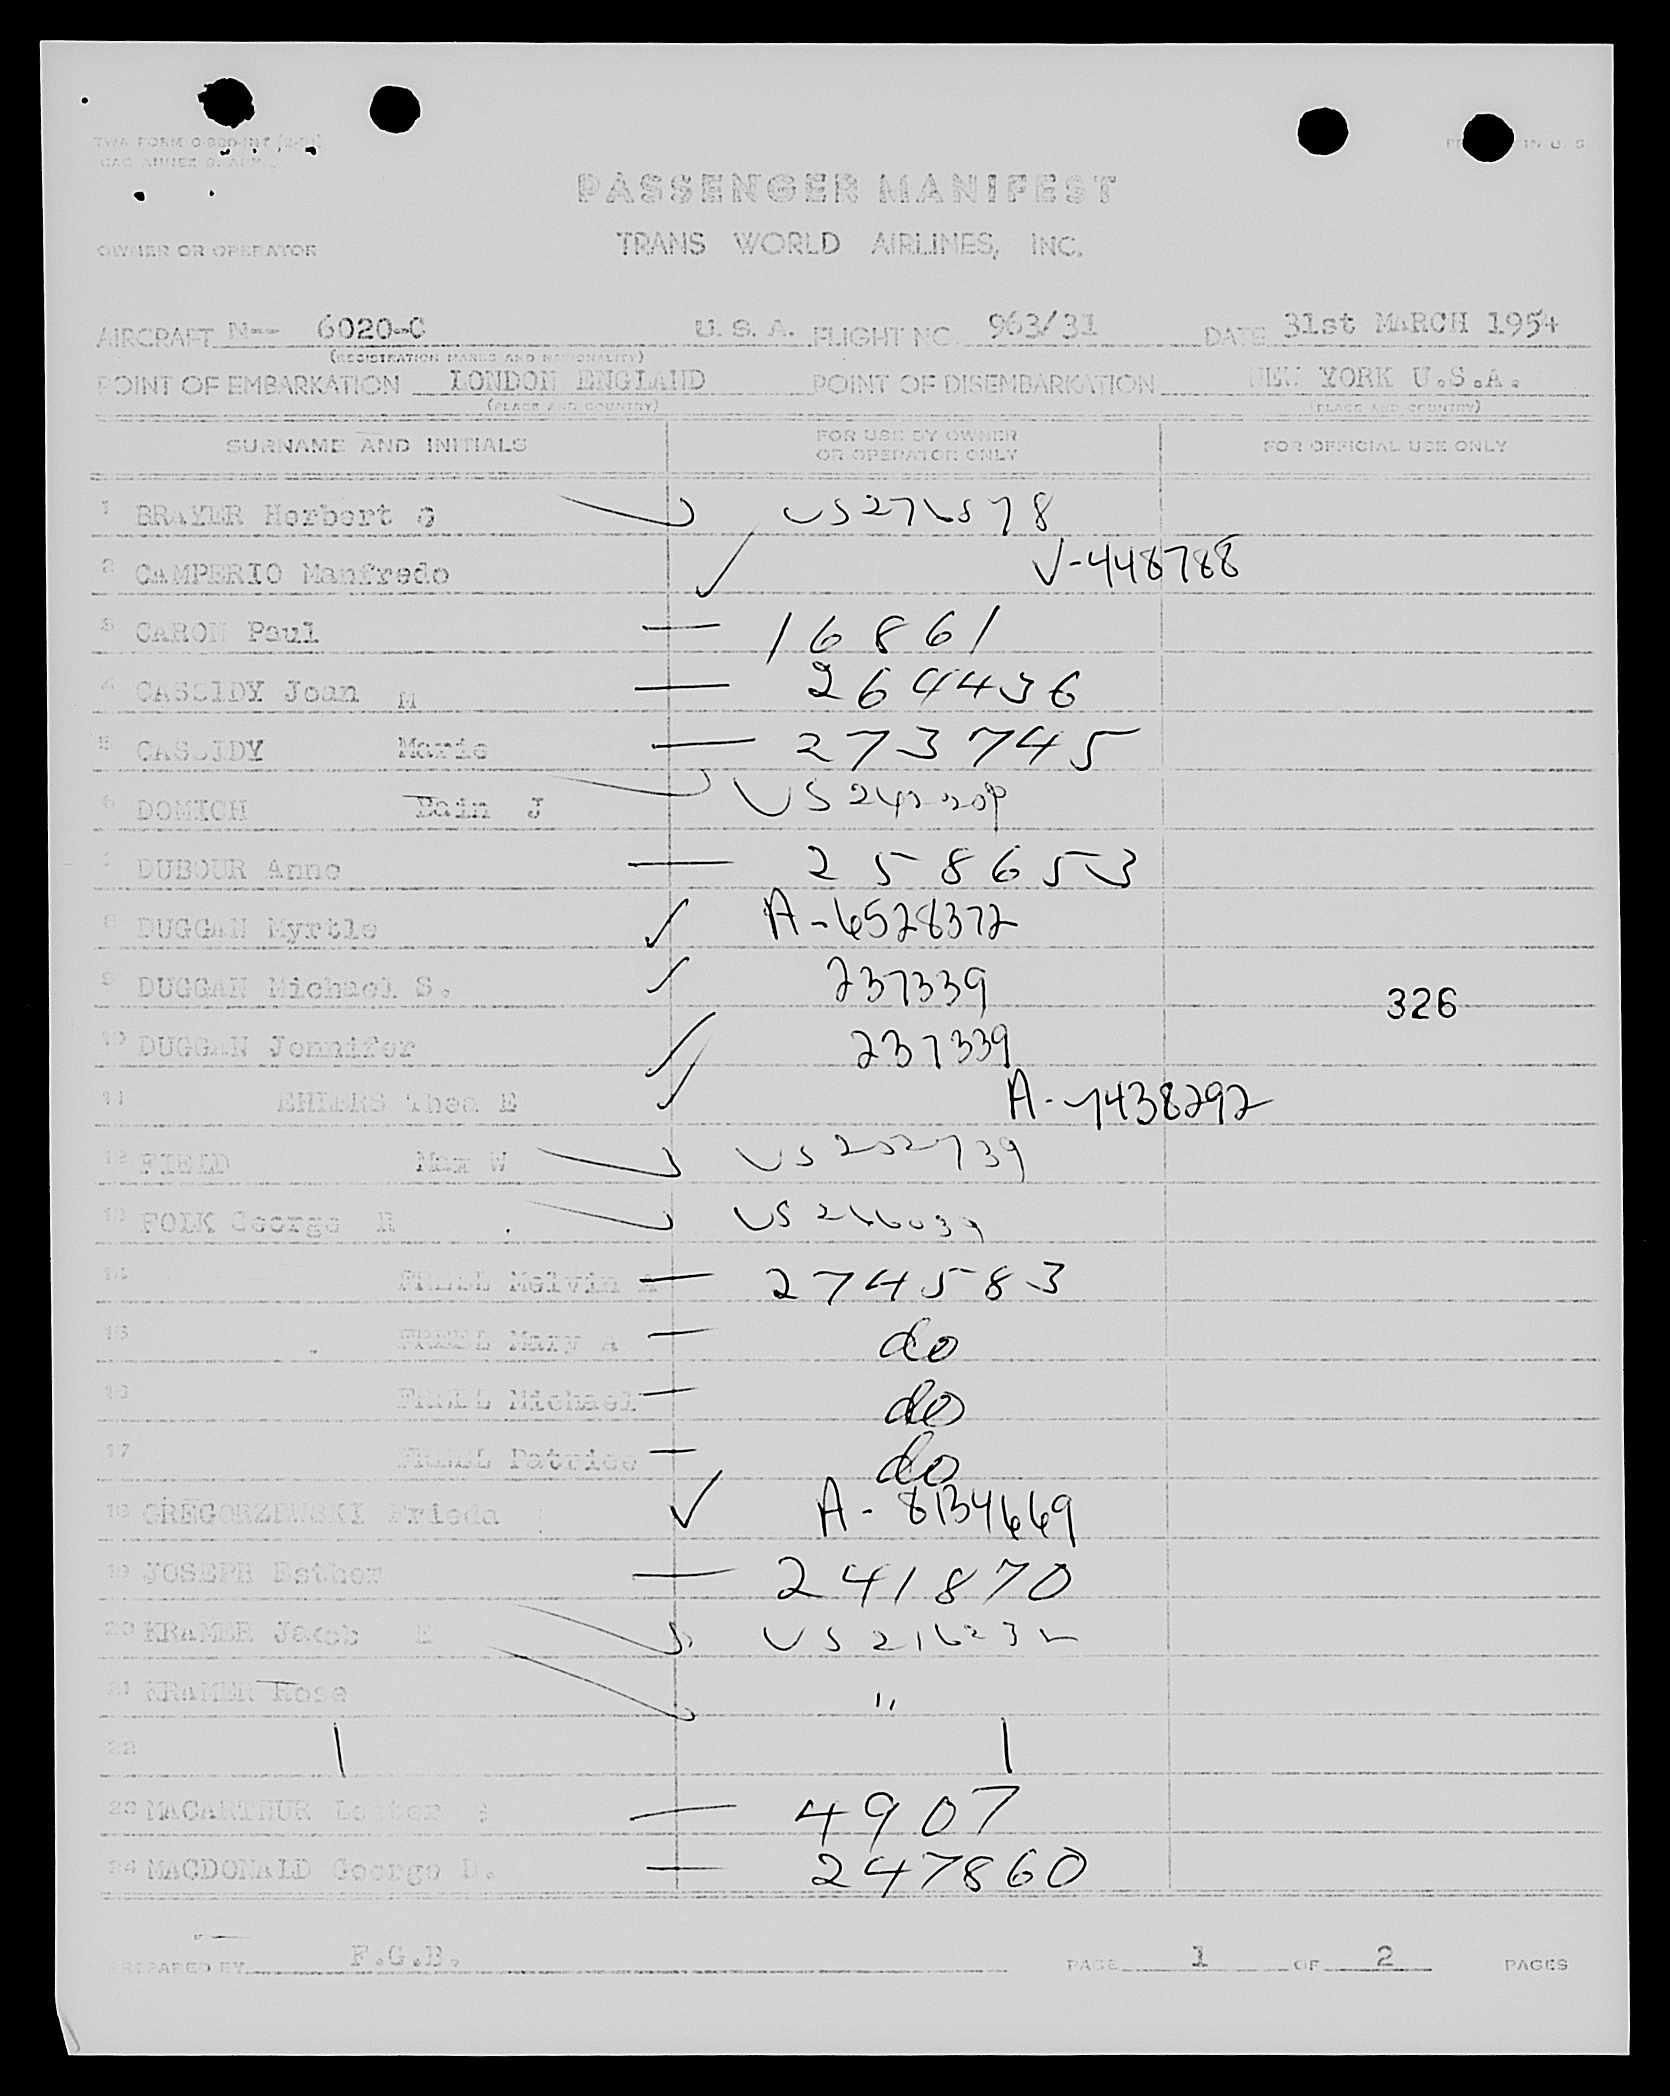 TWA FORM
PASSENGER MANIFEST
OWNER OR OPERATOR TRANS WORLD AIRLINES, INC.
AIRCRAFT N-- 6020-C U. S. A. FLIGHT NO. 963/31 DATE 31st MARCH 1954
(REGISTRATION MARKS AND NATIONALITY)
POINT OF EMBARKATION LONDON ENGLAND POINT OF DISEMBARKATION NEW YORK U.S.A.
(PLACE AND COUNTRY) (PLACE AND COUNTRY)
SURNAME AND INITIALS FOR USE BY OWNER OR OPERATOR ONLY FOR OFFICIAL USE ONLY
1 BRAYER Herbert O US276578
2 CAMPERIO Manfredo V-448788
3 CARON Paul — 16861
4 CASSIDY Joan M — 264436
5 CASSIDY Marie — 273745
6 DOMICH J US
7 DUBOUR Anne — 258653
8 DUGGAN Myrtle ✓ A-6528372
9 DUGGAN Michael S. ✓ 237339
326
10 DUGGAN Jennifer ✓ 237339
11 EHLERS Thea E ✓ A-7438292
12 FIELD Max W US 202739
13 FOLK George H US 266039
14 Melvin A — 274583
15 Mary A — do
16 Michael — do
17 Patrice — do
18 GREGORZEWSKI Frieda ✓ A-8134669
19 JOSEPH Esther — 241870
20 KRAMER Jacob E US 216232
21 KRAMER Rose "
22
23 MACARTHUR Lester — 4907
24 MACDONALD George D. — 247860
PREPARED BY F.G.B. PAGE 1 OF 2 PAGES